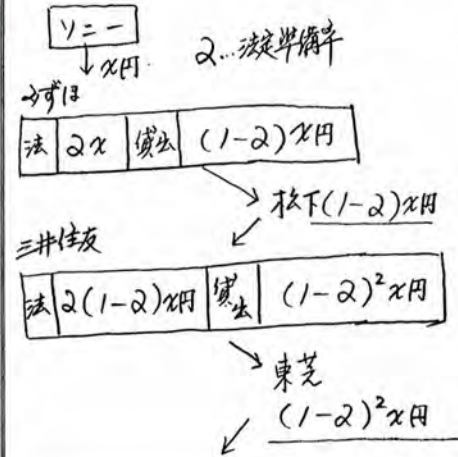 ソニー
↓ x円 α…法定準備率
みずほ
法 αx 貸出 (1-α)x円
松下(1-α)x円
三井住友
法 α(1-α)x円 貸出 (1-α)²x円
東芝
(1-α)²x円